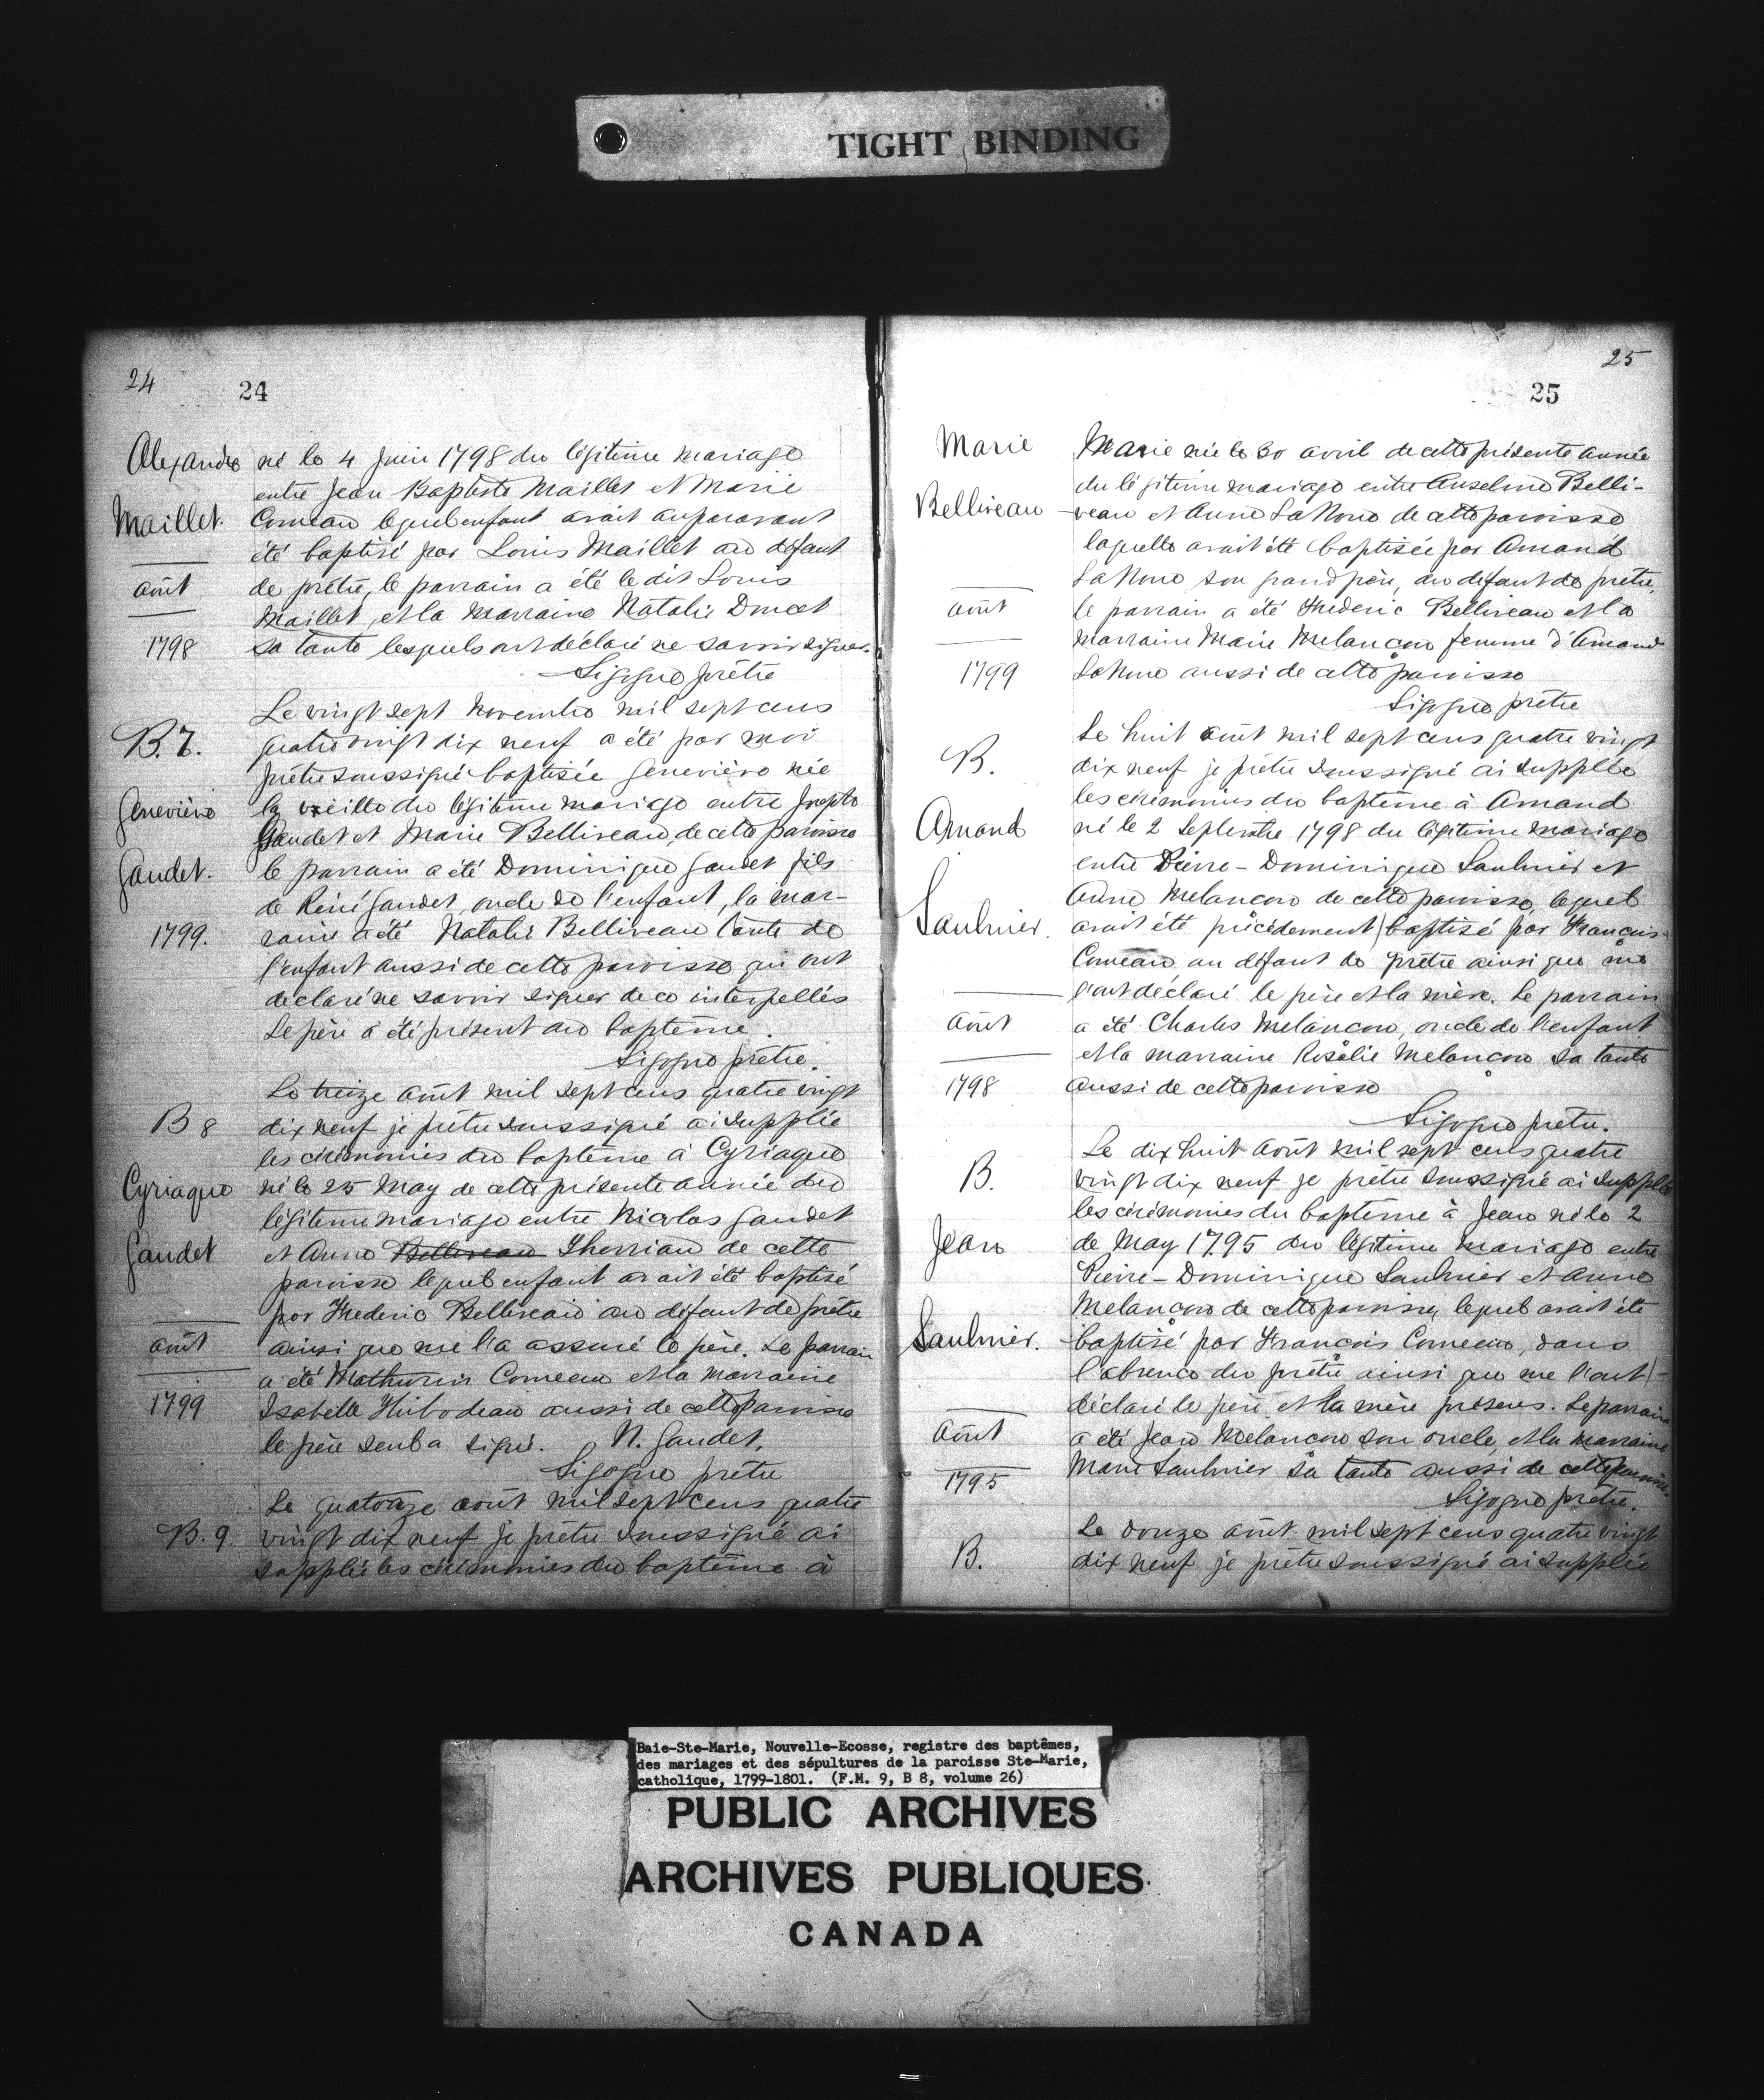 TIGHT BINDING
24
24
Alexandre
Maillet.
août
1798
né le 4 Juin 1798 du légitime mariage
entre Jean Baptiste Maillet et Marie
Comeau lequel enfant avait auparavant
été baptisé par Louis Maillet au défaut
de prêtre, le parrain a été le dit Louis
Maillet, et la marraine Natalie Doucet
sa tante lesquels ont déclaré ne savoir signer.
Sigogne prêtre
B. 7.
Geneviève
Gaudet.
1799.
Le vingt sept Novembre mil sept cens
quatre vingt dix neuf a été par moi
prêtre soussigné baptisée Geneviève née
la veille du légitime mariage entre Joseph
Gaudet et Marie Belliveau, de cette paroisse
le parrain a été Dominique Gaudet fils
de Réné Gaudet, oncle de l'enfant, la mar-
raine a été Natalie Belliveau tante de
l'enfant aussi de cette paroisse qui ont
déclaré ne savoir signer de ce interpellés
Le père a été présent au baptême.
Sigogne prêtre.
B 8
Cyriaque
Gaudet
août
1799
Le treize août mil sept cens quatre vingt
dix neuf je prêtre soussigné ai supplée
les cérémonies du baptême à Cyriaque
né le 25 May de cette présente année du
légitime mariage entre Nicolas Gaudet
et Anne Belliveau Therriau de cette
paroisse lequel enfant avait été baptisé
par Frederic Belliveau au défaut de prêtre
ainsi que me l'a assuré le père. Le parrain
a été Mathurin Comeau et la marraine
Isabelle Thibodeau aussi de cette paroisse
le père seul a signé. N. Gaudet.
Sigogne prêtre
B. 9
Le quatorze août mil sept cens quatre
vingt dix neuf je prêtre soussigné ai
supplée les cérémonies du baptême à
25
25
Marie
Belliveau
août
1799
Marie née le 30 avril de cette présente année
du légitime mariage entre Anselme Belli-
veau et Anne LaNoue de cette paroisse
laquelle avait été baptisée par Amand
LaNoue son grand père, au défaut de prêtre,
le parrain a été Frederic Belliveau et la
marraine Marie Melancon femme d'Amand
LaNoue aussi de cette paroisse
Sigogne prêtre
B.
Amand
Saulnier.
Août
1798
Le huit août mil sept cens quatre vingt
dix neuf je prêtre soussigné ai supplée
les cérémonies du baptême à Amand
né le 2 Septembre 1798 du légitime mariage
entre Pierre-Dominique Saulnier et
Anne Melancon de cette paroisse, lequel
avait été précédement baptisé par François
Comeau au défaut de prêtre ainsi que me
l'ont déclaré le père et la mère. Le parrain
a été Charles Melancon, oncle de l'enfant
et la marraine Rosalie Melancon sa tante
aussi de cette paroisse
Sigogne prêtre.
B.
Jean
Saulnier.
Août
1795
Le dix huit Août mil sept cens quatre
vingt dix neuf je prêtre soussigné ai supplée
les cérémonies du baptême à Jean né le 2
de May 1795 du légitime mariage entre
Pierre-Dominique Saulnier et Anne
Melancon de cette paroisse, lequel avait été
baptisé par François Comeau, dans
l'absence du prêtre ainsi que me l'ont
déclaré le père et la mère présens. Le parrain
a été Jean Melancon son oncle, et la marraine
Marie Saulnier sa tante aussi de cette paroisse
Sigogne prêtre.
B.
Le douze août mil sept cens quatre vingt
dix neuf je prêtre soussigné ai supplée
Baie-Ste-Marie, Nouvelle-Ecosse, registre des baptêmes,
des mariages et des sépultures de la paroisse Ste-Marie,
catholique, 1799-1801. (F.M. 9, B 8, volume 26)
PUBLIC ARCHIVES
ARCHIVES PUBLIQUES
CANADA